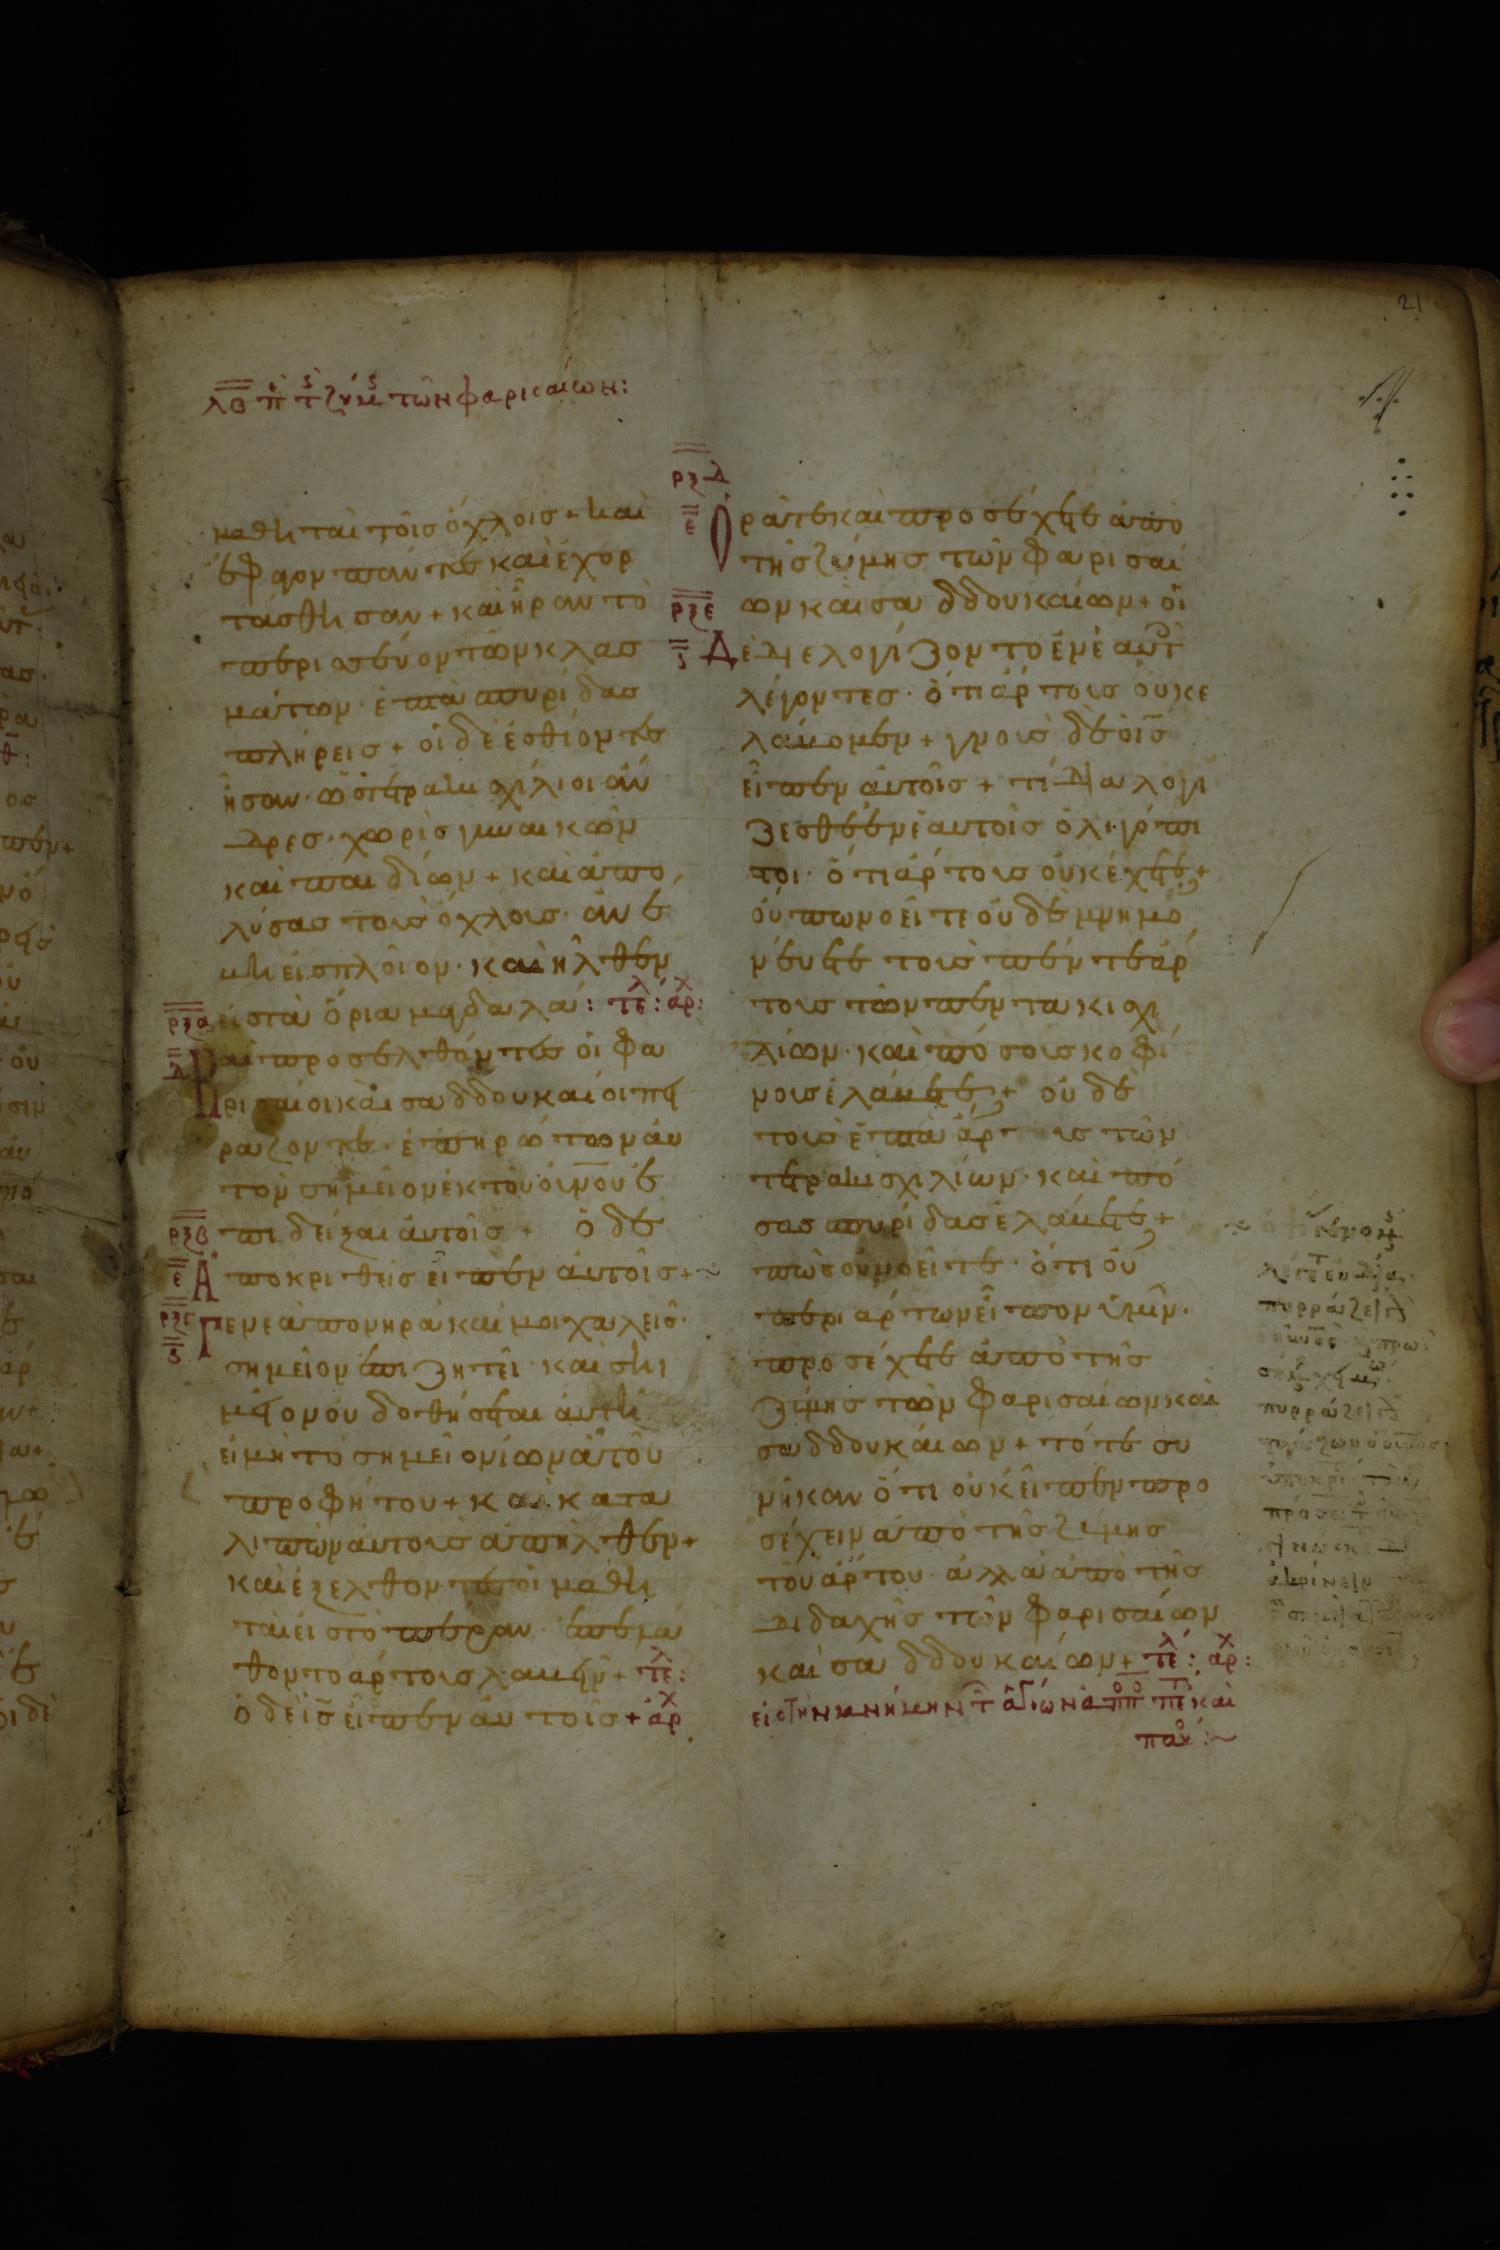 21
λβ π τ ζυμ τῶν φαρισαίων:
μαθηταὶ τοῖσ ὄχλοισ + καὶ
ἔφαγον πάντεσ καὶ ἐχορ
τάσθησαν + καὶ ἦραν τὸ
περισσεύον τῶν κλασ
μάτων· ἑπτὰ σπυρίδασ
πλήρεισ + οἱ δὲ ἐσθίοντεσ
ἦσαν· ὡσ τετρακισχίλιοι ἄν
δρεσ· χωρὶσ γυναικῶν
καὶ παιδίων + καὶ ἀπο
λύσασ τοὺσ ὄχλουσ· ἀνέ
βη εἰσ πλοῖον· καὶ ἦλθεν
ρξα εἰσ τὰ ὅρια μαγδαλά: τε λ: ἀρ χ:
δ Καὶ προσελθόντεσ οἱ φα
ρισαῖοι καὶ σαδδουκαῖοι πει
ράζοντεσ· ἐπηρώτων αὐ
τὸν σημεῖον ἐκ τοῦ οὐνου ἐ
ρξβ πιδεῖξαι αὐτοῖσ + ὁ δὲ
ε Ἀποκριθεὶσ εἶπεν αὐτοῖσ +
ρξγ Γενεὰ πονηρὰ καὶ μοιχαλεὶσ·
ς σημεῖον ἐπιζητεῖ· καὶ ση
μεῖον οὐ δοθήσεται αὐτῆ
εἰ μὴ τὸ σημεῖον ἰωνᾶ τοῦ
προφήτου + καὶ κατα
λιπὼν αὐτοὺσ ἀπῆλθεν +
καὶ ἐξελθόντεσ οἱ μαθη
ταὶ εἰσ τὸ πέραν· ἐπελά
θοντο ἄρτουσ λαβεῖν + τε λ:
ὁ δὲ ισ εἶπεν αὐτοῖσ + ἀρ χ
ρξδ
ε Ὁρᾶτε καὶ προσέχετε ἀπὸ
τῆσ ζύμησ τῶν φαρισαί
ρξε ων καὶ σαδδουκαίων + οἱ
ς Δὲ διελογίζοντο ἐν ἑαυτ
λέγοντεσ· ὅτι ἄρτουσ οὐκ ἐ
λάβομεν + γνοὺσ δὲ ὁ ισ
εἶπεν αὐτοῖσ + τί διαλογί
ζεσθε ἐν ἑαυτοῖσ ὀλιγόπι
στοι· ὅτι ἄρτουσ οὐκ ἔχετε +
οὔπω νοεῖτε οὐδὲ μνημο
νεύετε τοὺσ πέντε ἄρ
τουσ τῶν πεντακισχι
λίων· καὶ πόσουσ κοφί
νουσ ἐλάβετε + οὐδὲ
τοὺσ ἑπτὰ ἄρτουσ τῶν
τετρακισχιλίων· καὶ πό
σασ σπυρίδασ ἐλάβετε +
πῶσ οὐ νοεῖτε· ὅτι οὐ
περὶ ἄρτων εἶπον ὑμῖν·
προσέχετε ἀπὸ τῆσ
ζύμησ τῶν φαρισαίων καὶ
σαδδουκαίων + τότε συ
νῆκαν ὅτι οὐκ εἶπεν προ
σέχειν ἀπὸ τῆσ ζύμησ
τοῦ ἄρτου· ἀλλὰ ἀπὸ τῆσ
διδαχῆσ τῶν φαρισαίων
καὶ σαδδουκαίων + τε λ: ἀρ χ:
εἰσ τὴν μνήμην τ ἁγίων ἀππ πε καὶ
παυ:~
πυρράζει
πυρράζει